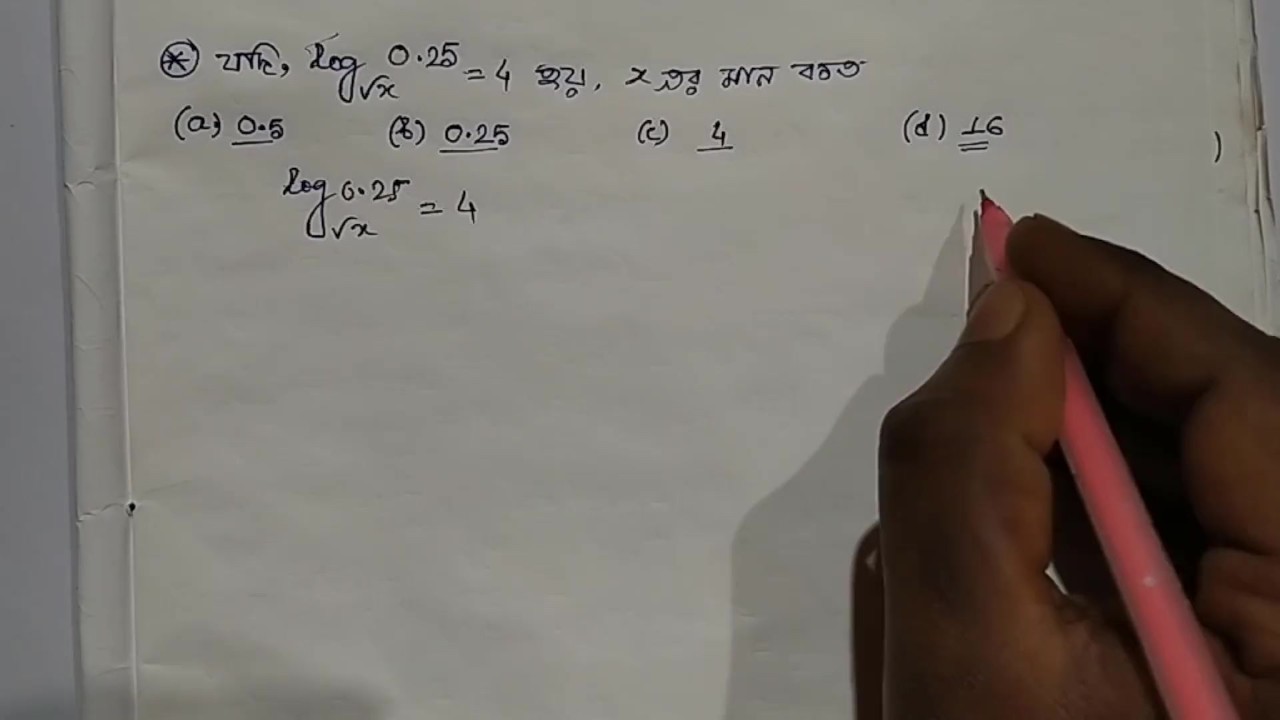 * যদি, log√x 0.25 = 4 হয়, x এর মান কত
(a) 0.5 (b) 0.25 (c) 4 (d) 16 )
log√x 0.25 = 4